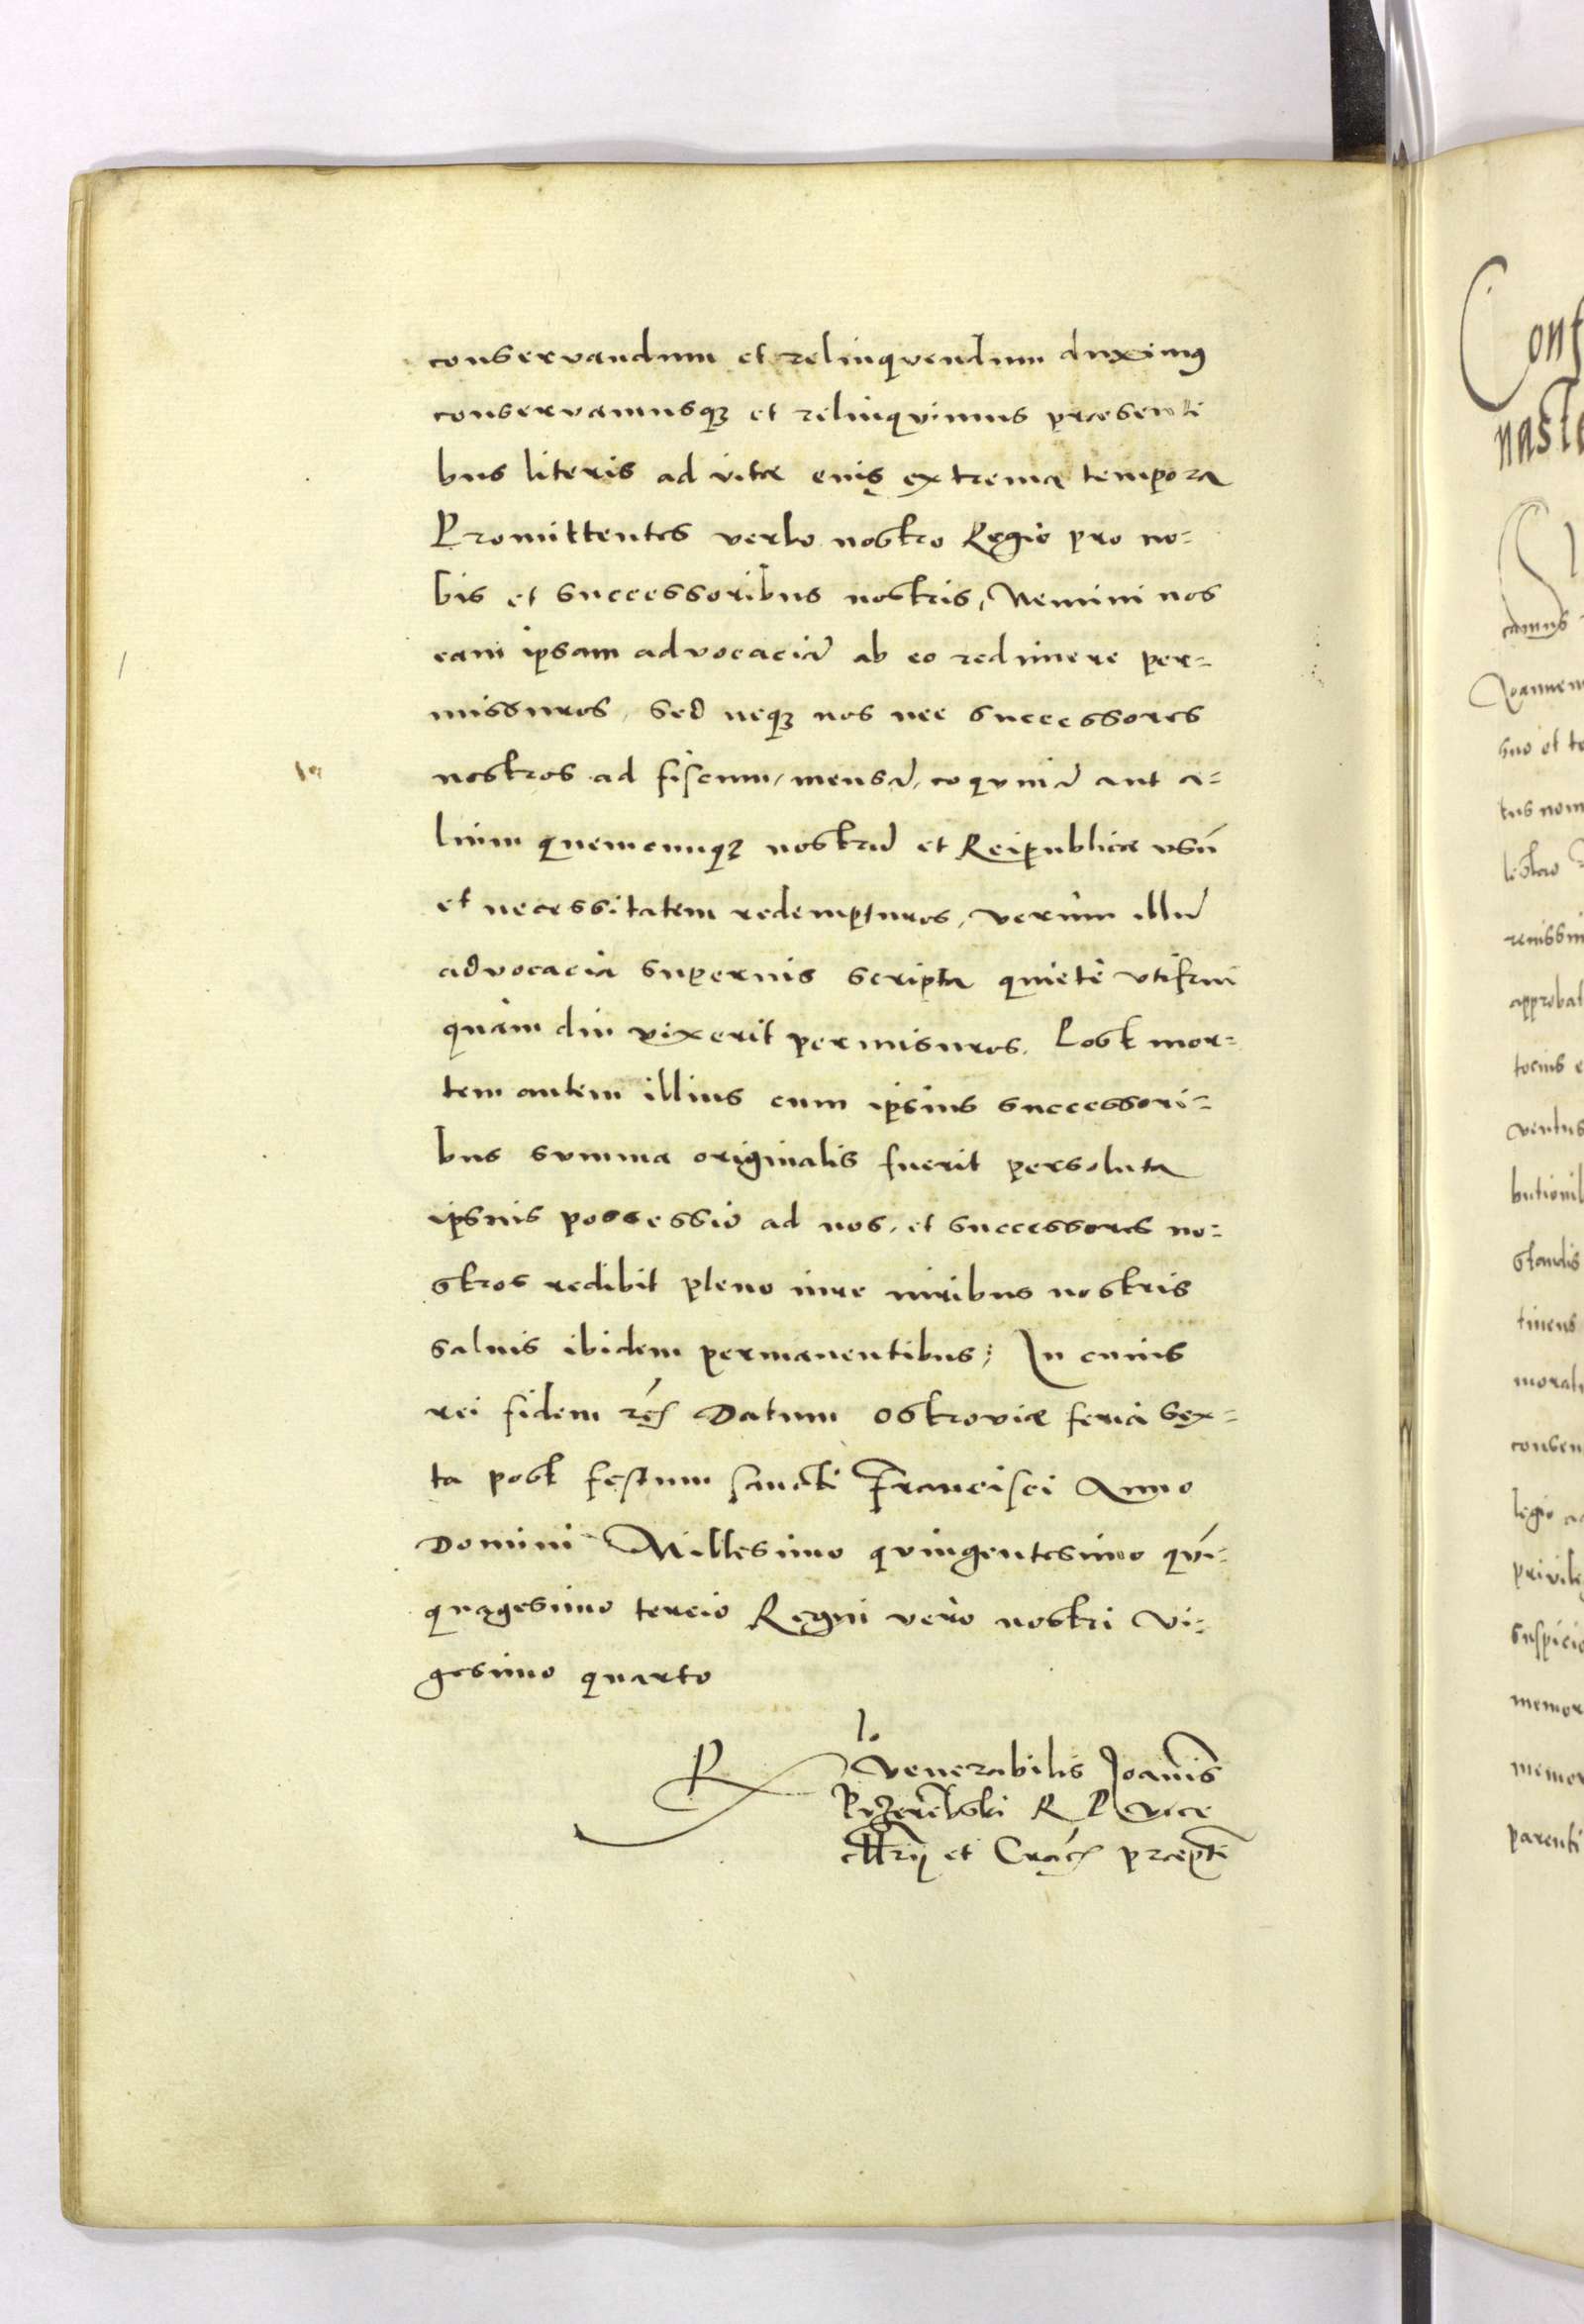 conservandum et relinquendum duximus
conservamusq3 et relinquimus praesenti
bus literis ad vitae eius extrema tempora
Promittentes verbo nostro Regio pro no=
bis et successoribus nostris, Nemini nos
eam ipsam advocaciã ab eo redimere per=
missuros, sed neq3 nos nec successores
nostros ad fiscum, mensã, coquinã aut a=
lium quemcunq3 nostrũ et Reipublicae usũ
et necessitatem redempturos, verùm illũ
advocacia superius scripta quietè utifrui
quàm diu vixerit permisuros. Post mor=
tem autem illius cum ipsius successori=
bus summa originalis fuerit persoluta
ipsius possessio ad nos, et successores no=
stros redibit pleno iure iuribus nostris
salvis ibidem permanentibus; In cuius
rei fidem rẽ Datum Ostroviae feria sex=
ta post festum sancti Francisci Anno
Domini Millesimo quingentesimo quĩ=
quagesimo tercio Regni verò nostri Vi=
gesimo quarto
R
Venerabilis Joannis
Przerẽbski R P Vice
cllrij et Crac praeptĩ
Conf
nast
camus
Joannem
suo et to
tus nom
renissim
approbat
tocius e
ventus
butionib
standis
tinens
morali
consen
legio a
privileg
suspicio
memor
memor
parenti